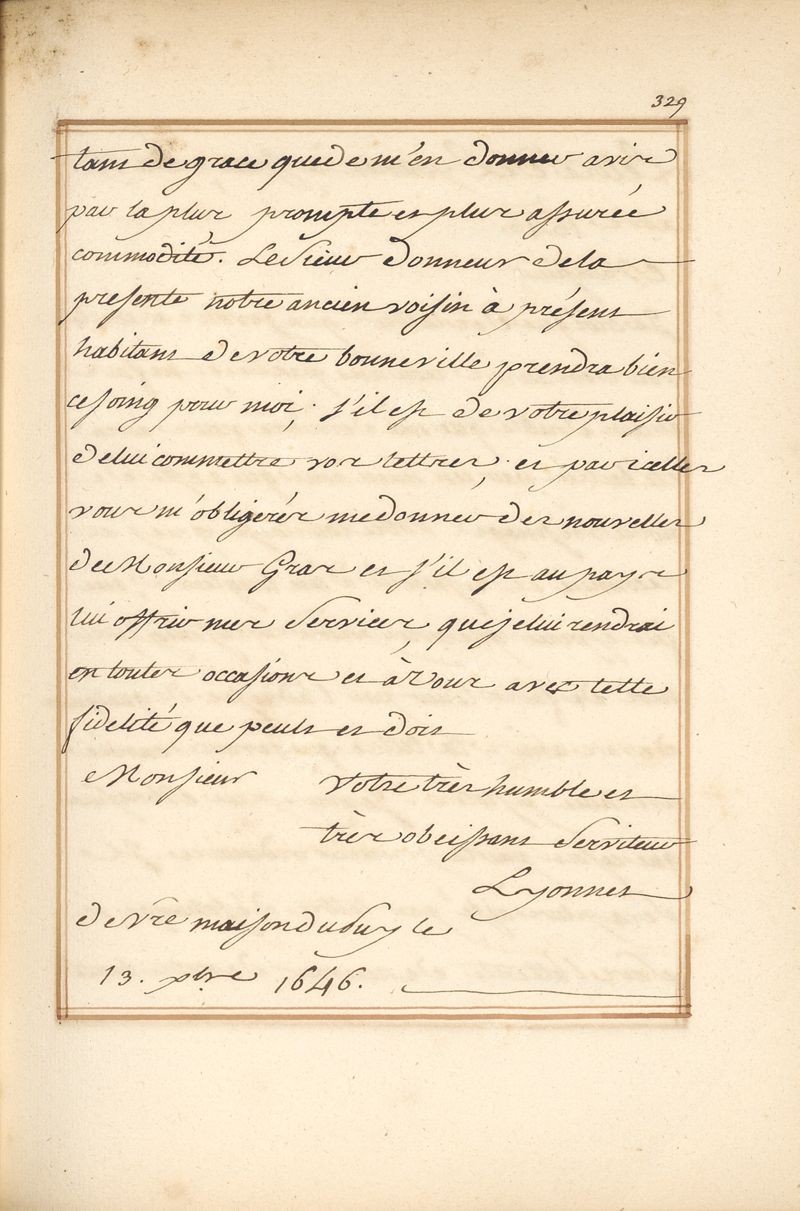 329
tant de grace que de m'en donner avis
par la plus prompte et plus assurée
commodité. Le Sieur donneur de la
presente notre ancien voisin à présent
habitant de votre bonneville prendra bien
ce soing pour moi, s'il est de votre plaisir
de lui commettre vos lettres, et par icelles
vous m'obligerés me donner des nouvelles
de Monsieur Gras et s'il est au pays
lui offrir mes services, que je lui rendrai
en toutes occasions et à vous avec telle
fidelité que peult et doit
Monsieur votre très humble et
très obeissant Serviteur
Lyonnet
de vre maison du Puy le
13. xbre 1646.